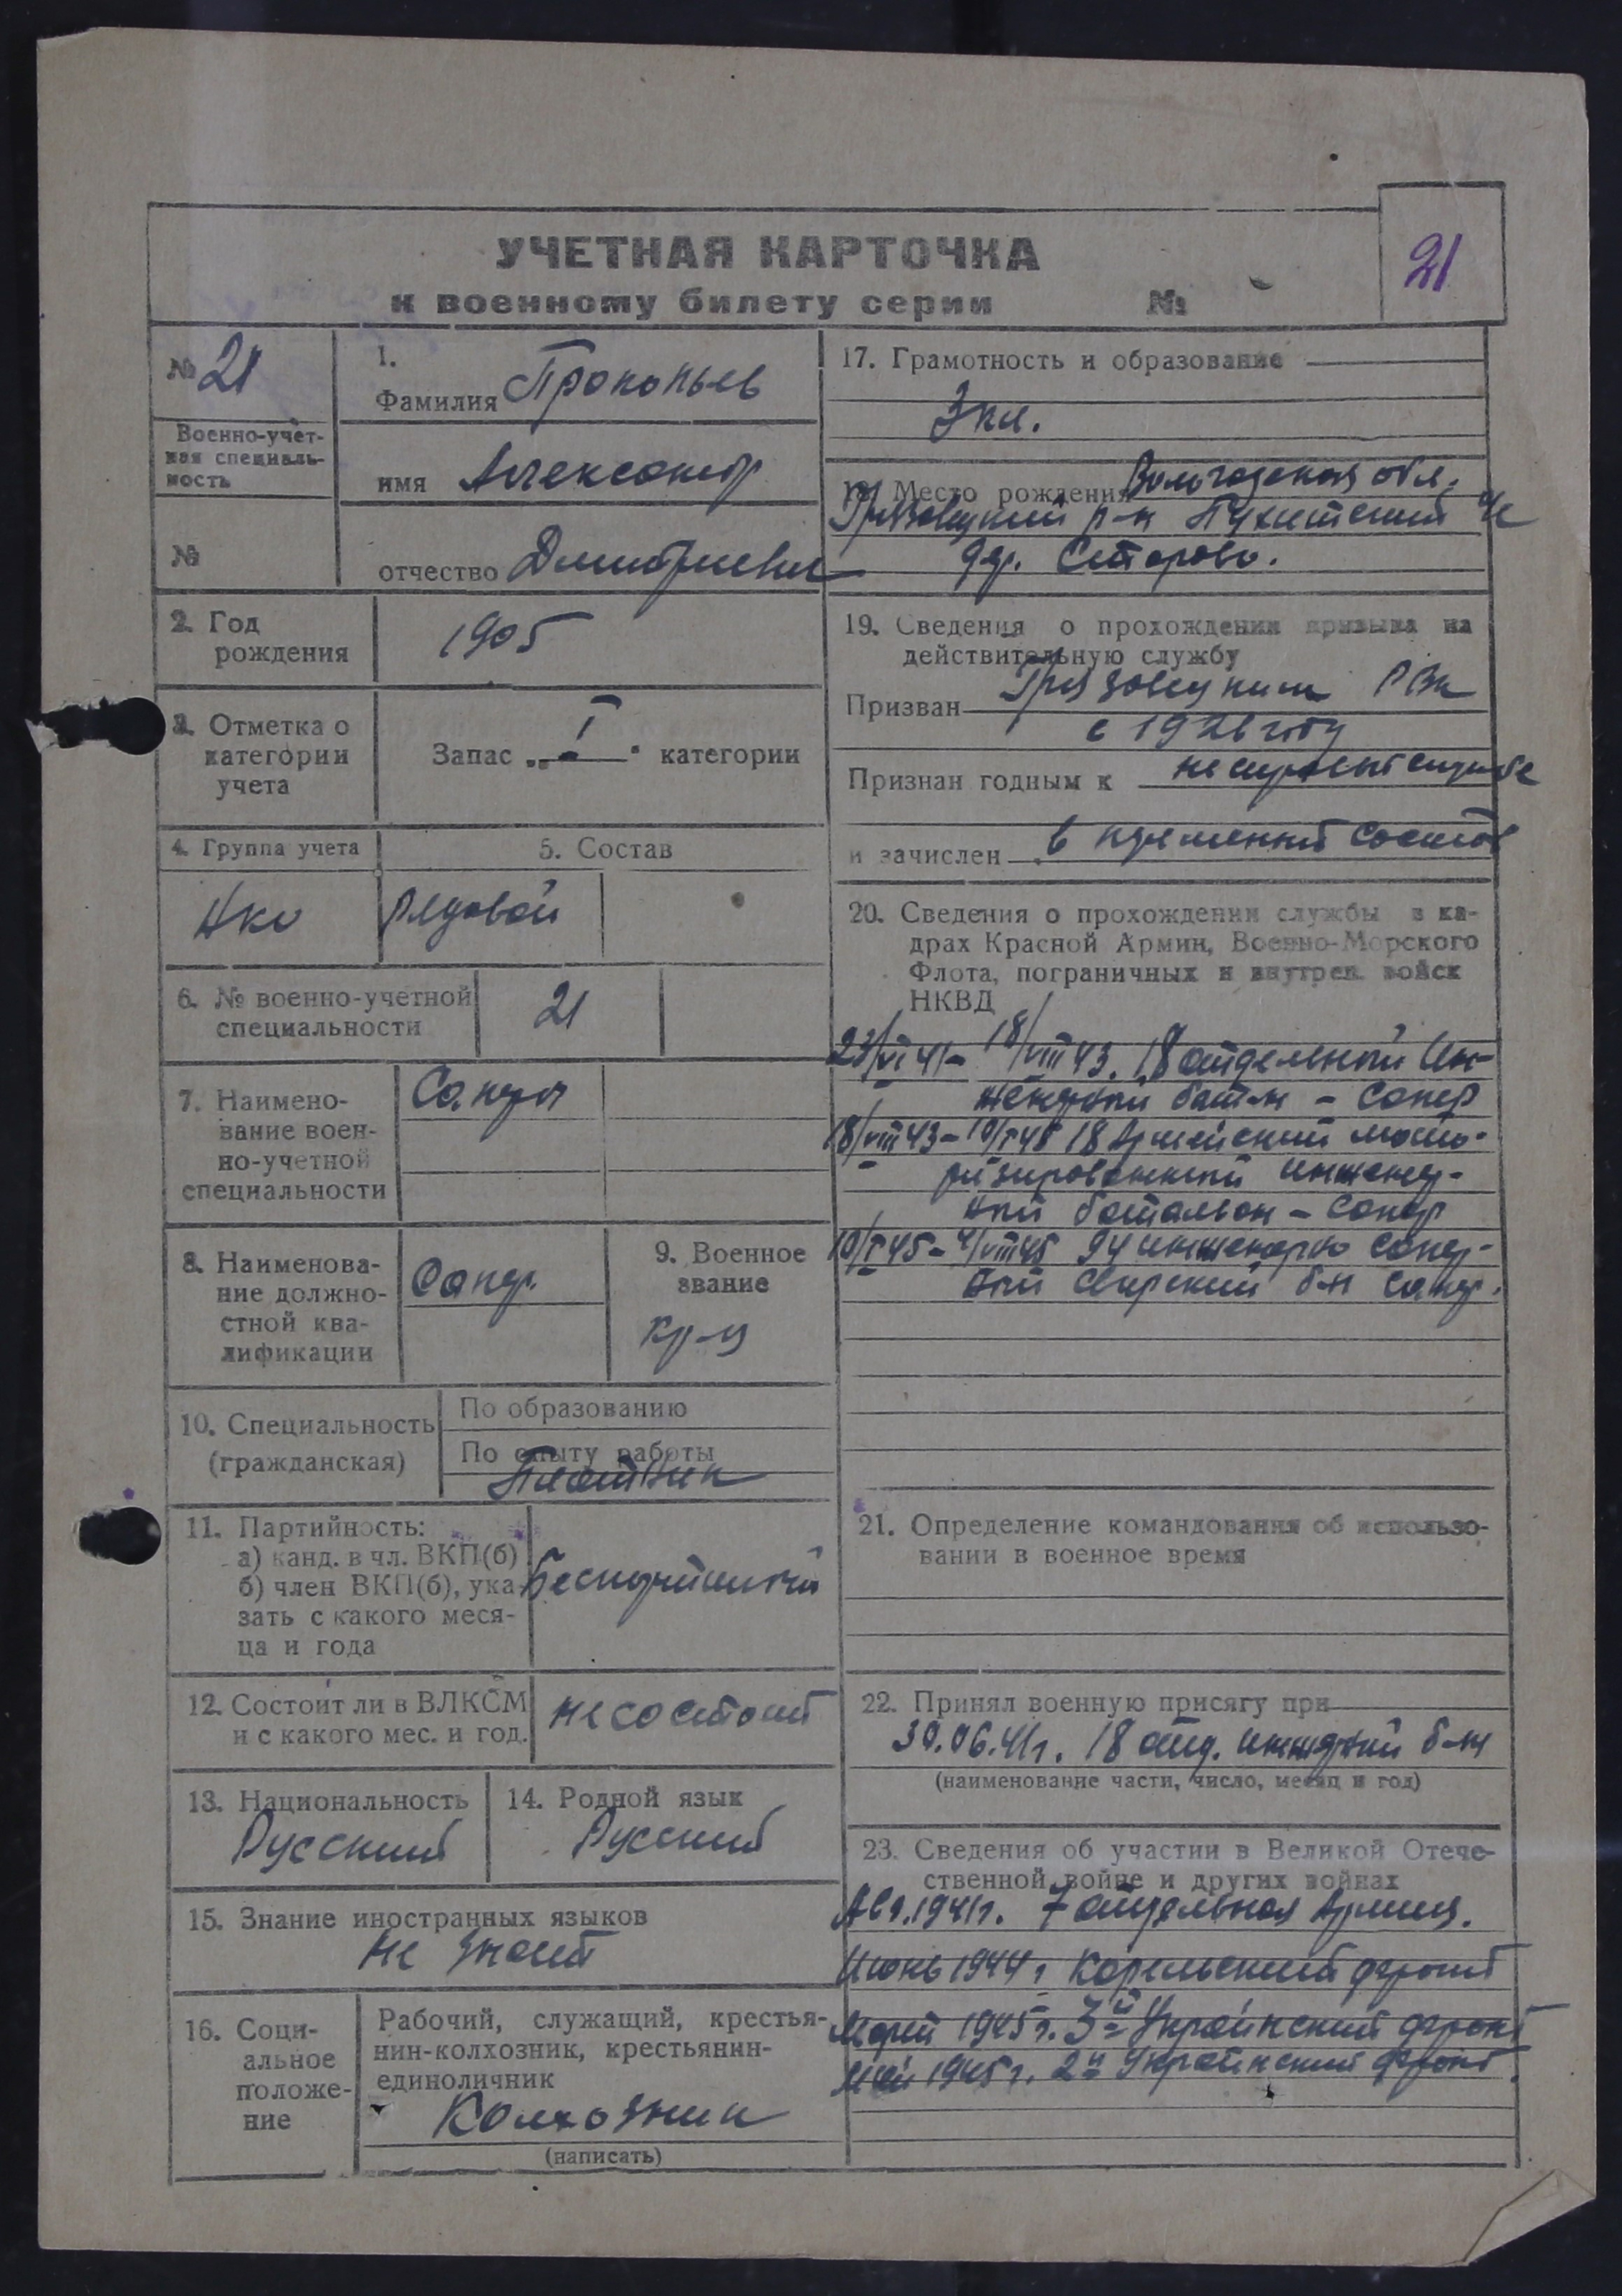 21
УЧЕТНАЯ КАРТОЧКА
к военному билету серии №
№ 21
Военно-учет-
ная специаль-
ность
№
1.
Фамилия Прокопьев
имя Александр
отчество Дмитриевич
2. Год
рождения
1905
3. Отметка о
категории
учета
Запас „ I " категории
4. Группа учета
5. Состав
НКО
Рядовой
6. № военно-учетной
специальности
21
7. Наимено-
вание воен-
но-учетной
специальности
Саперы
8. Наименова-
ние должно-
стной ква-
лификации
Сапер.
9. Военное
звание
кр-ц
10. Специальность
(гражданская)
По образованию
По опыту работы
Плотник
11. Партийность:
а) канд. в чл. ВКП(б)
б) член ВКП(б), ука-
зать с какого меся-
ца и года
Беспартийный
12. Состоит ли в ВЛКСМ
и с какого мес. и год.
не состоит
13. Национальность
Русский
14. Родной язык
Русский
15. Знание иностранных языков
Не знает
16. Соци-
альное
положе-
ние
Рабочий, служащий, крестья-
нин-колхозник, крестьянин-
единоличник
Колхозник
(написать)
17. Грамотность и образование
3 кл.
Место рождения Вологодская обл.
Грязовецкий р-н
дер.
19. Сведения о прохождении призыва на
действительную службу
Призван Грязовецким РВК
в 1926 году
Признан годным к нестроевой службе
и зачислен в переменный состав
20. Сведения о прохождении службы в ка-
драх Красной Армии, Военно-Морского
Флота, пограничных и внутрен. войск
НКВД
23/VI 41 - 18/VIII 43. 18 отдельный Ин-
женерный бат-н - Сапер
18/VIII 43 - 10/I 45 18 Армейский мото-
ризированный инженер-
ный батальон - Сапер
10/I 45 - 4/VIII 45 94 инженерно сапер-
ный Свирский б-н Сапер.
21. Определение командования об использо-
вании в военное время
22. Принял военную присягу при
30.06.41г. 18 отд. инженерный б-н
(наименование части, число, месяц и год)
23. Сведения об участии в Великой Отече-
ственной войне и других войнах
Авг. 1941г. 7 отдельная Армия.
Июнь 1944г Карельский фронт
Март 1945г. 3й Украинский фронт
Май 1945г. 2й Украинский фронт.